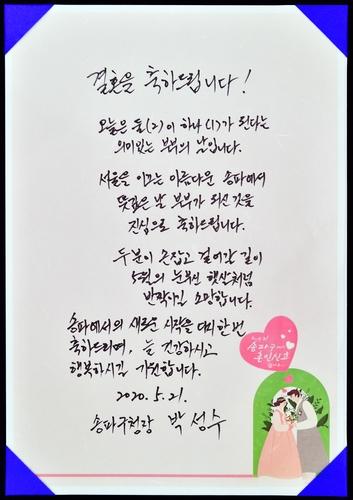 결혼을 축하드립니다!
오늘은 둘(2)이 하나(1)가 된다는
의미있는 부부의 날입니다.
서울을 이끄는 아름다운 송파에서
뜻깊은 날 부부가 되신 것을
진심으로 축하드립니다.
두 분이 손잡고 걸어갈 길이
5월의 눈부신 햇살처럼
반짝이길 소망합니다.
송파에서의 새로운 시작을 다시 한 번
축하드리며, 늘 건강하시고
행복하시길 기원합니다.
2020. 5. 21.
송파구청장 박성수
송파구에서
혼인신고